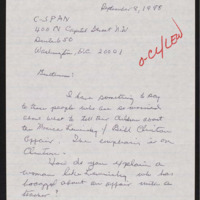 September 8, 1998
C-SPAN
400 N Capitol Street N.W.
Suite 650
Washington, D.C. 20001
Gentlemen:
I have something to say
to those people who are so worried
about what to tell their children about
the Monica Lewinsky & Bill Clinton
affair. The emphasis is on
Clinton.
How do you explain a
woman like Lewinsky who has
bragged about an affair with a
teacher?